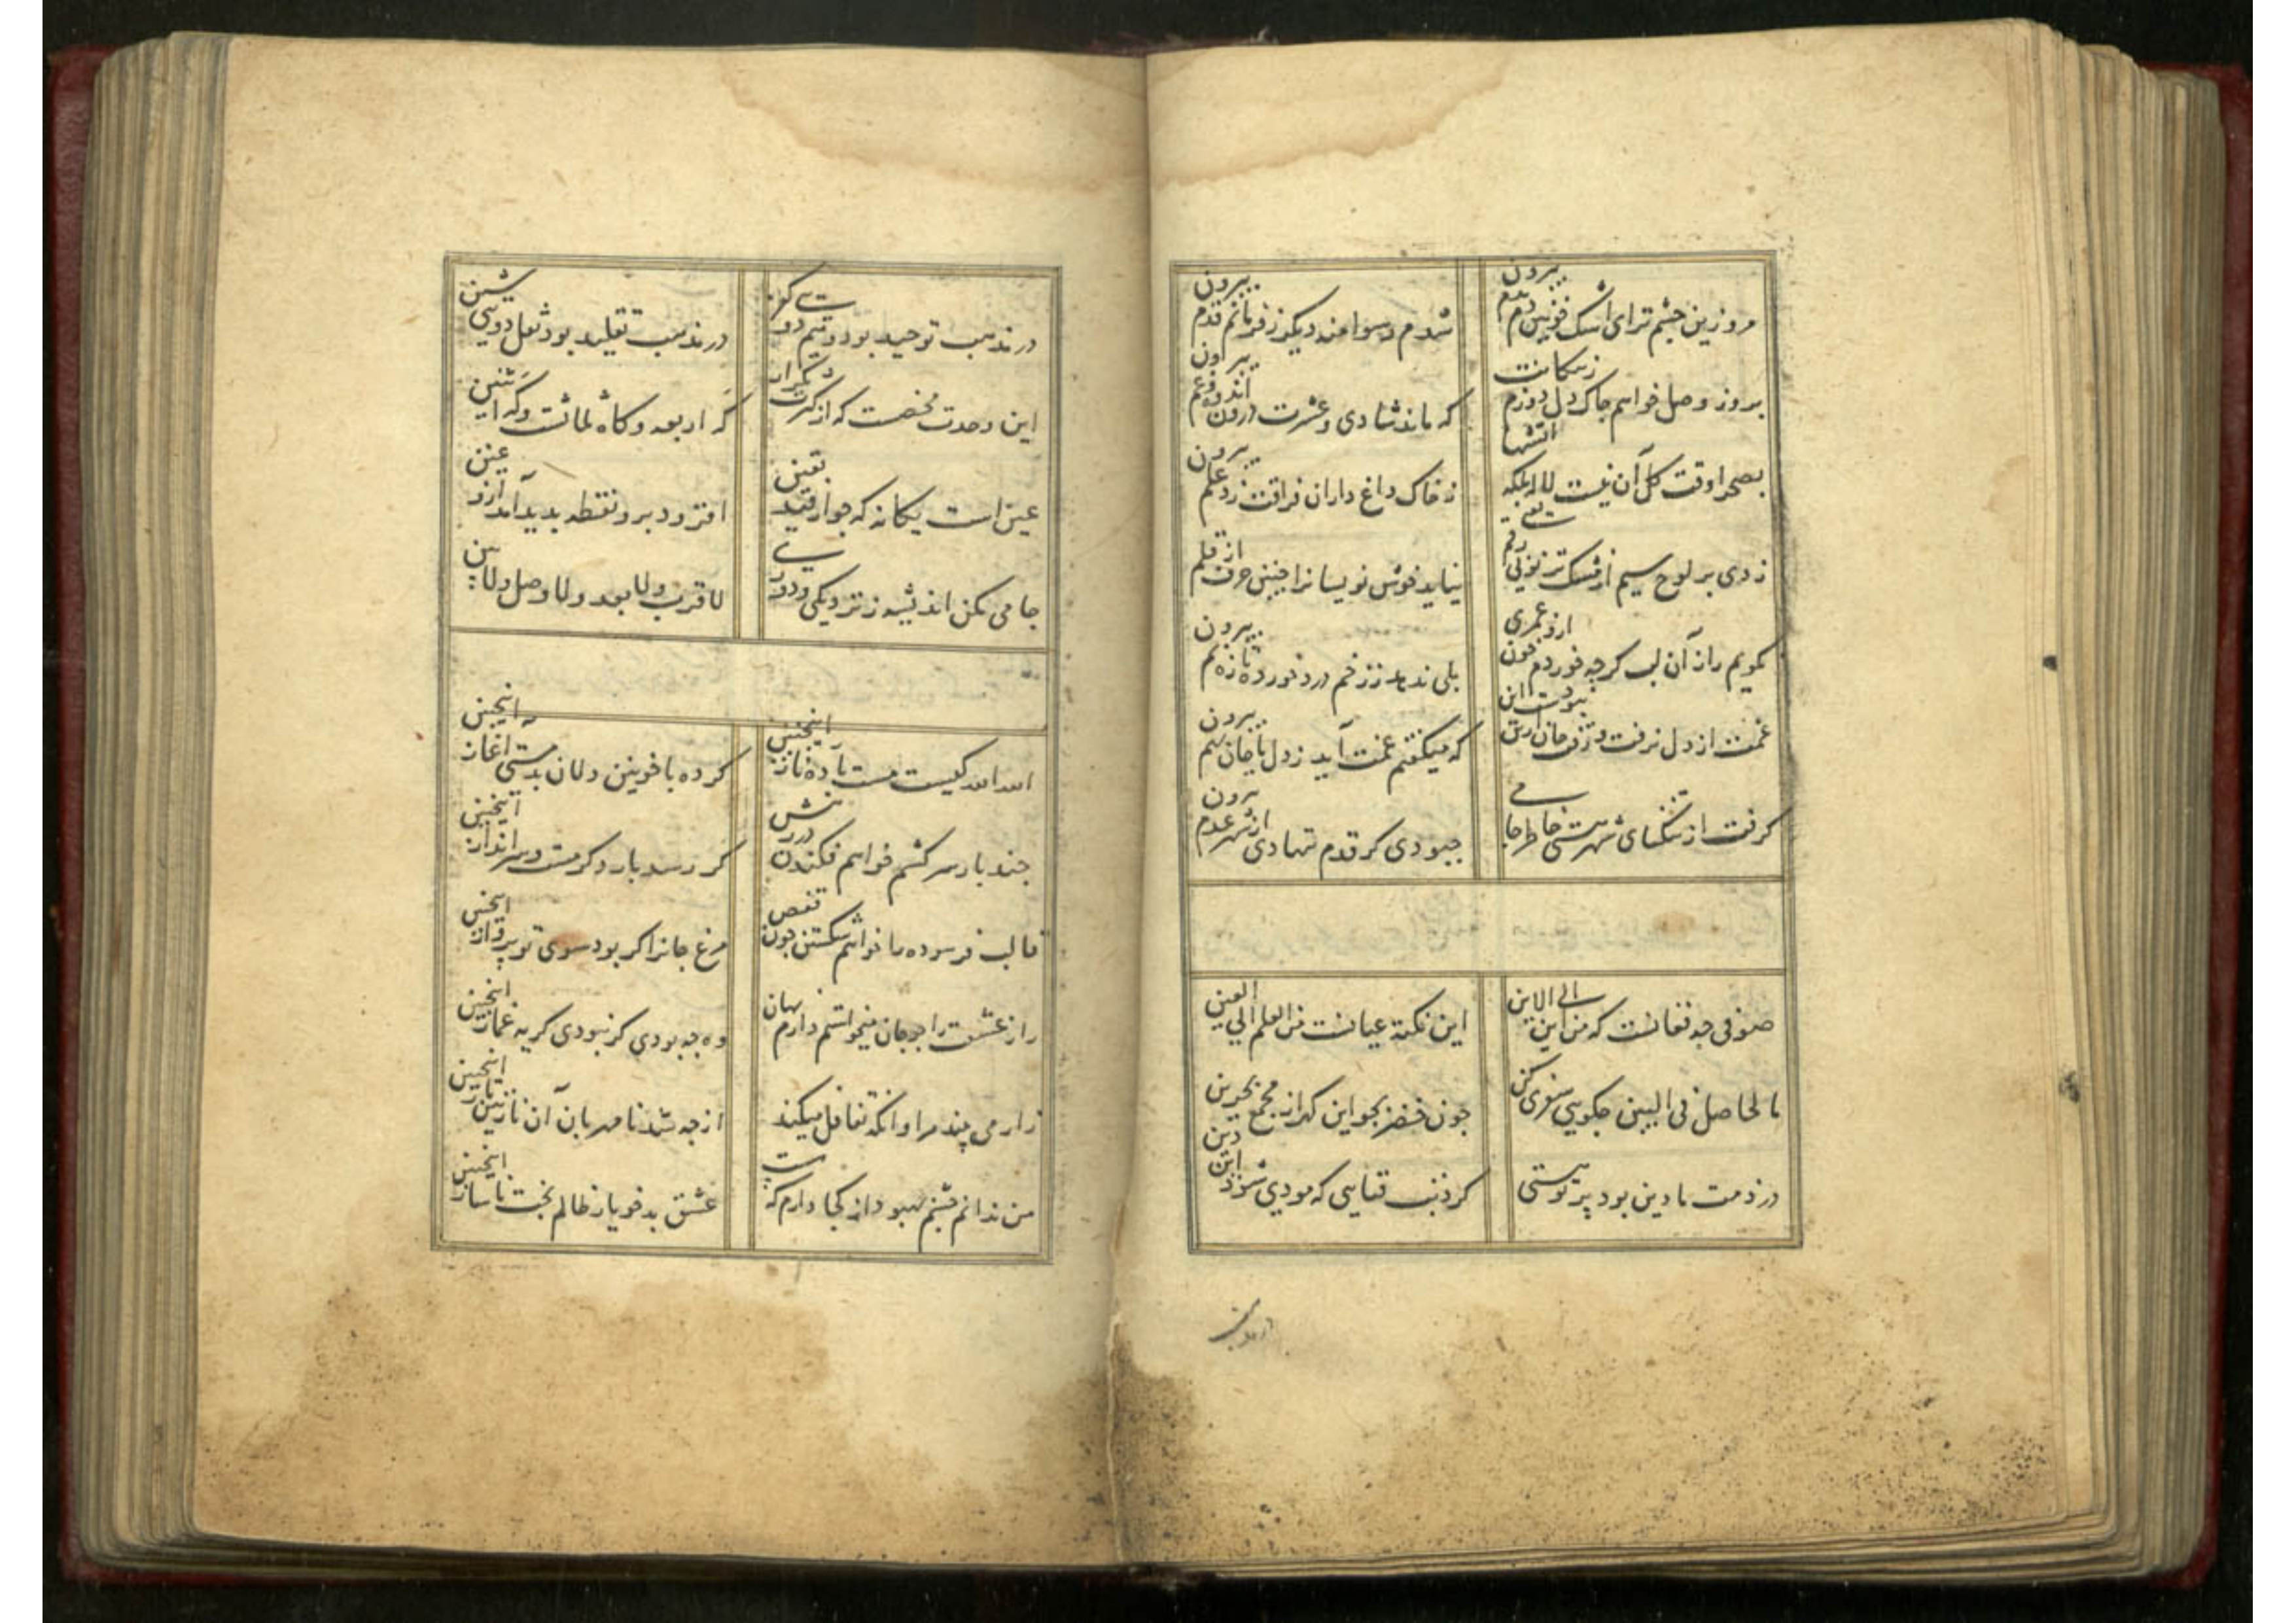 مرو زین چشم تر ای اشک خونین دم بدم بیرون
شدم رسوا منه دیگر ز فرمانم قدم بیرون
بروز وصل خواهم چاک دل دوزم ز سکانت
که ماند شادی و عشرت درون اندوه و غم بیرون
بصحرا وقت گل آن نیست لاله بلکه آتشها
ز خاک داغ داران فراقت زد علم بیرون
زدی بر لوح سیم از مشک تر نونی رقم
نیاید خوش نویسانرا چنین حرف از قلم بیرون
نگویم راز آن لب گرچه خوردم خون ازو عمری
بلی ندهد ز زخم درد خورده تازه نم بیرون
غمت از دل نرفت و رفت جان از تن نبودست این
که میگفتم غمت آید ز دل با جان بهم بیرون
گرفت از تنگنای شهر هستی خاطر جامی
چه بودی گر قدم ننهادی از شهر عدم بیرون
صوفی چه فغانست که من این الی الاین
این نکته عیانست من العلم الی العین
ما الحاصل فی البین چگویی سفری کن
چون خضر بجو این گهر از مجمع بحرین
در ذمت ما دین بود پرتو هستی
کو ذیت فنایی که مودی شود این دین
در مذهب توحید بود و تیم دو
در مذهب تقلید بود شغل دویی شین
این وحدت محضست که از کثرت
گه اربعه و گاه ثلاثست و گه اثنین
عین است یگانه که چو از قید تعین
افزود برو نقطه بدید آمد ازو غین
جامی مکن اندیشه ز نزدیکی و دوری
لا قرب ولا بعد ولا وصل ولا بین
الله الله کیست مست باده ناز اینچنین
کرده با خونین دلان بدمستی آغاز اینچنین
چند بار سر کشم خواهم فکندن در رهش
گر رسد بار دگر مست و سر انداز اینچنین
قالب فرسوده را خواهم شکستن چون قفص
مرغ جانرا گر بود سوی تو پرواز اینچنین
راز عشقت را چو جان میخواستم دارم نهان
وه چه بودی گر نبودی گریه غماز اینچنین
زار می بیند مرا وانگه تغافل میکند
از چه شد نامهربان آن نازنین باز اینچنین
من ندانم چشم بهبود از کجا دارم که هست
عشق بدخو یار ظالم بخت ناساز اینچنین